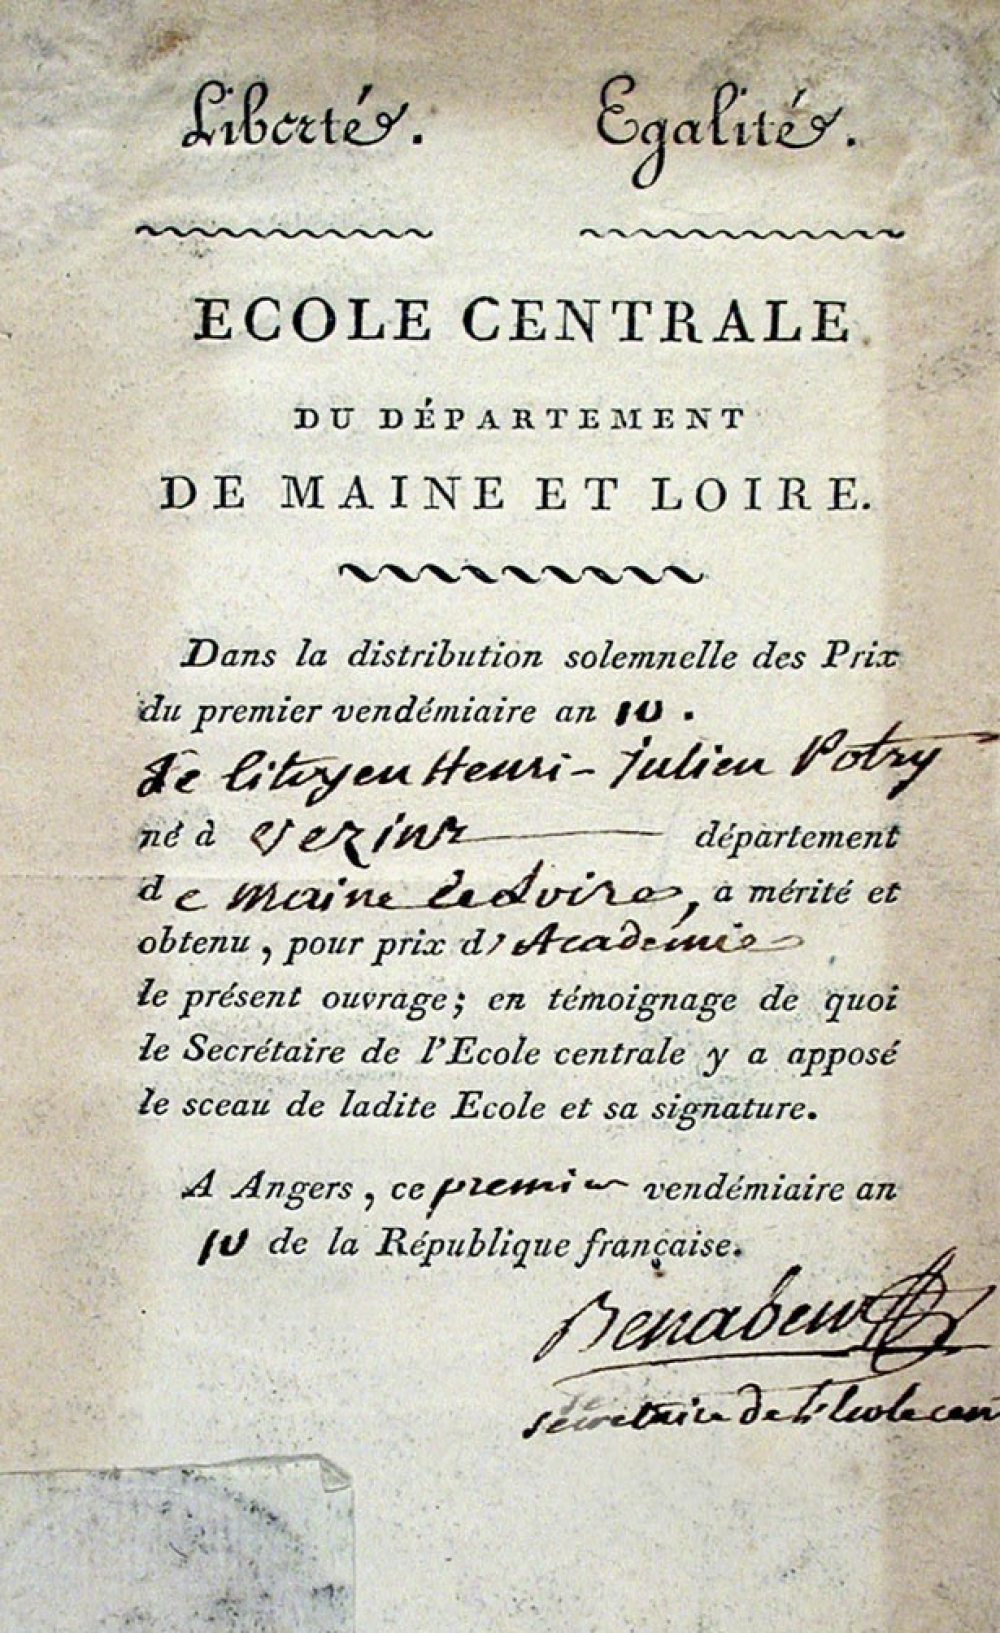 Liberté. Egalité.
ECOLE CENTRALE
DU DÉPARTEMENT
DE MAINE ET LOIRE.
Dans la distribution solemnelle des Prix
du premier vendémiaire an 10.
Le Citoyen Henri-Julien Potry
né à Vezins département
de maine et Loire, a mérité et
obtenu, pour prix d'Académie
le présent ouvrage; en témoignage de quoi
le Secrétaire de l'Ecole centrale y a apposé
le sceau de ladite Ecole et sa signature.
A Angers, ce premier vendémiaire an
10 de la République française.
Benaben
secretaire de l'Ecole cen